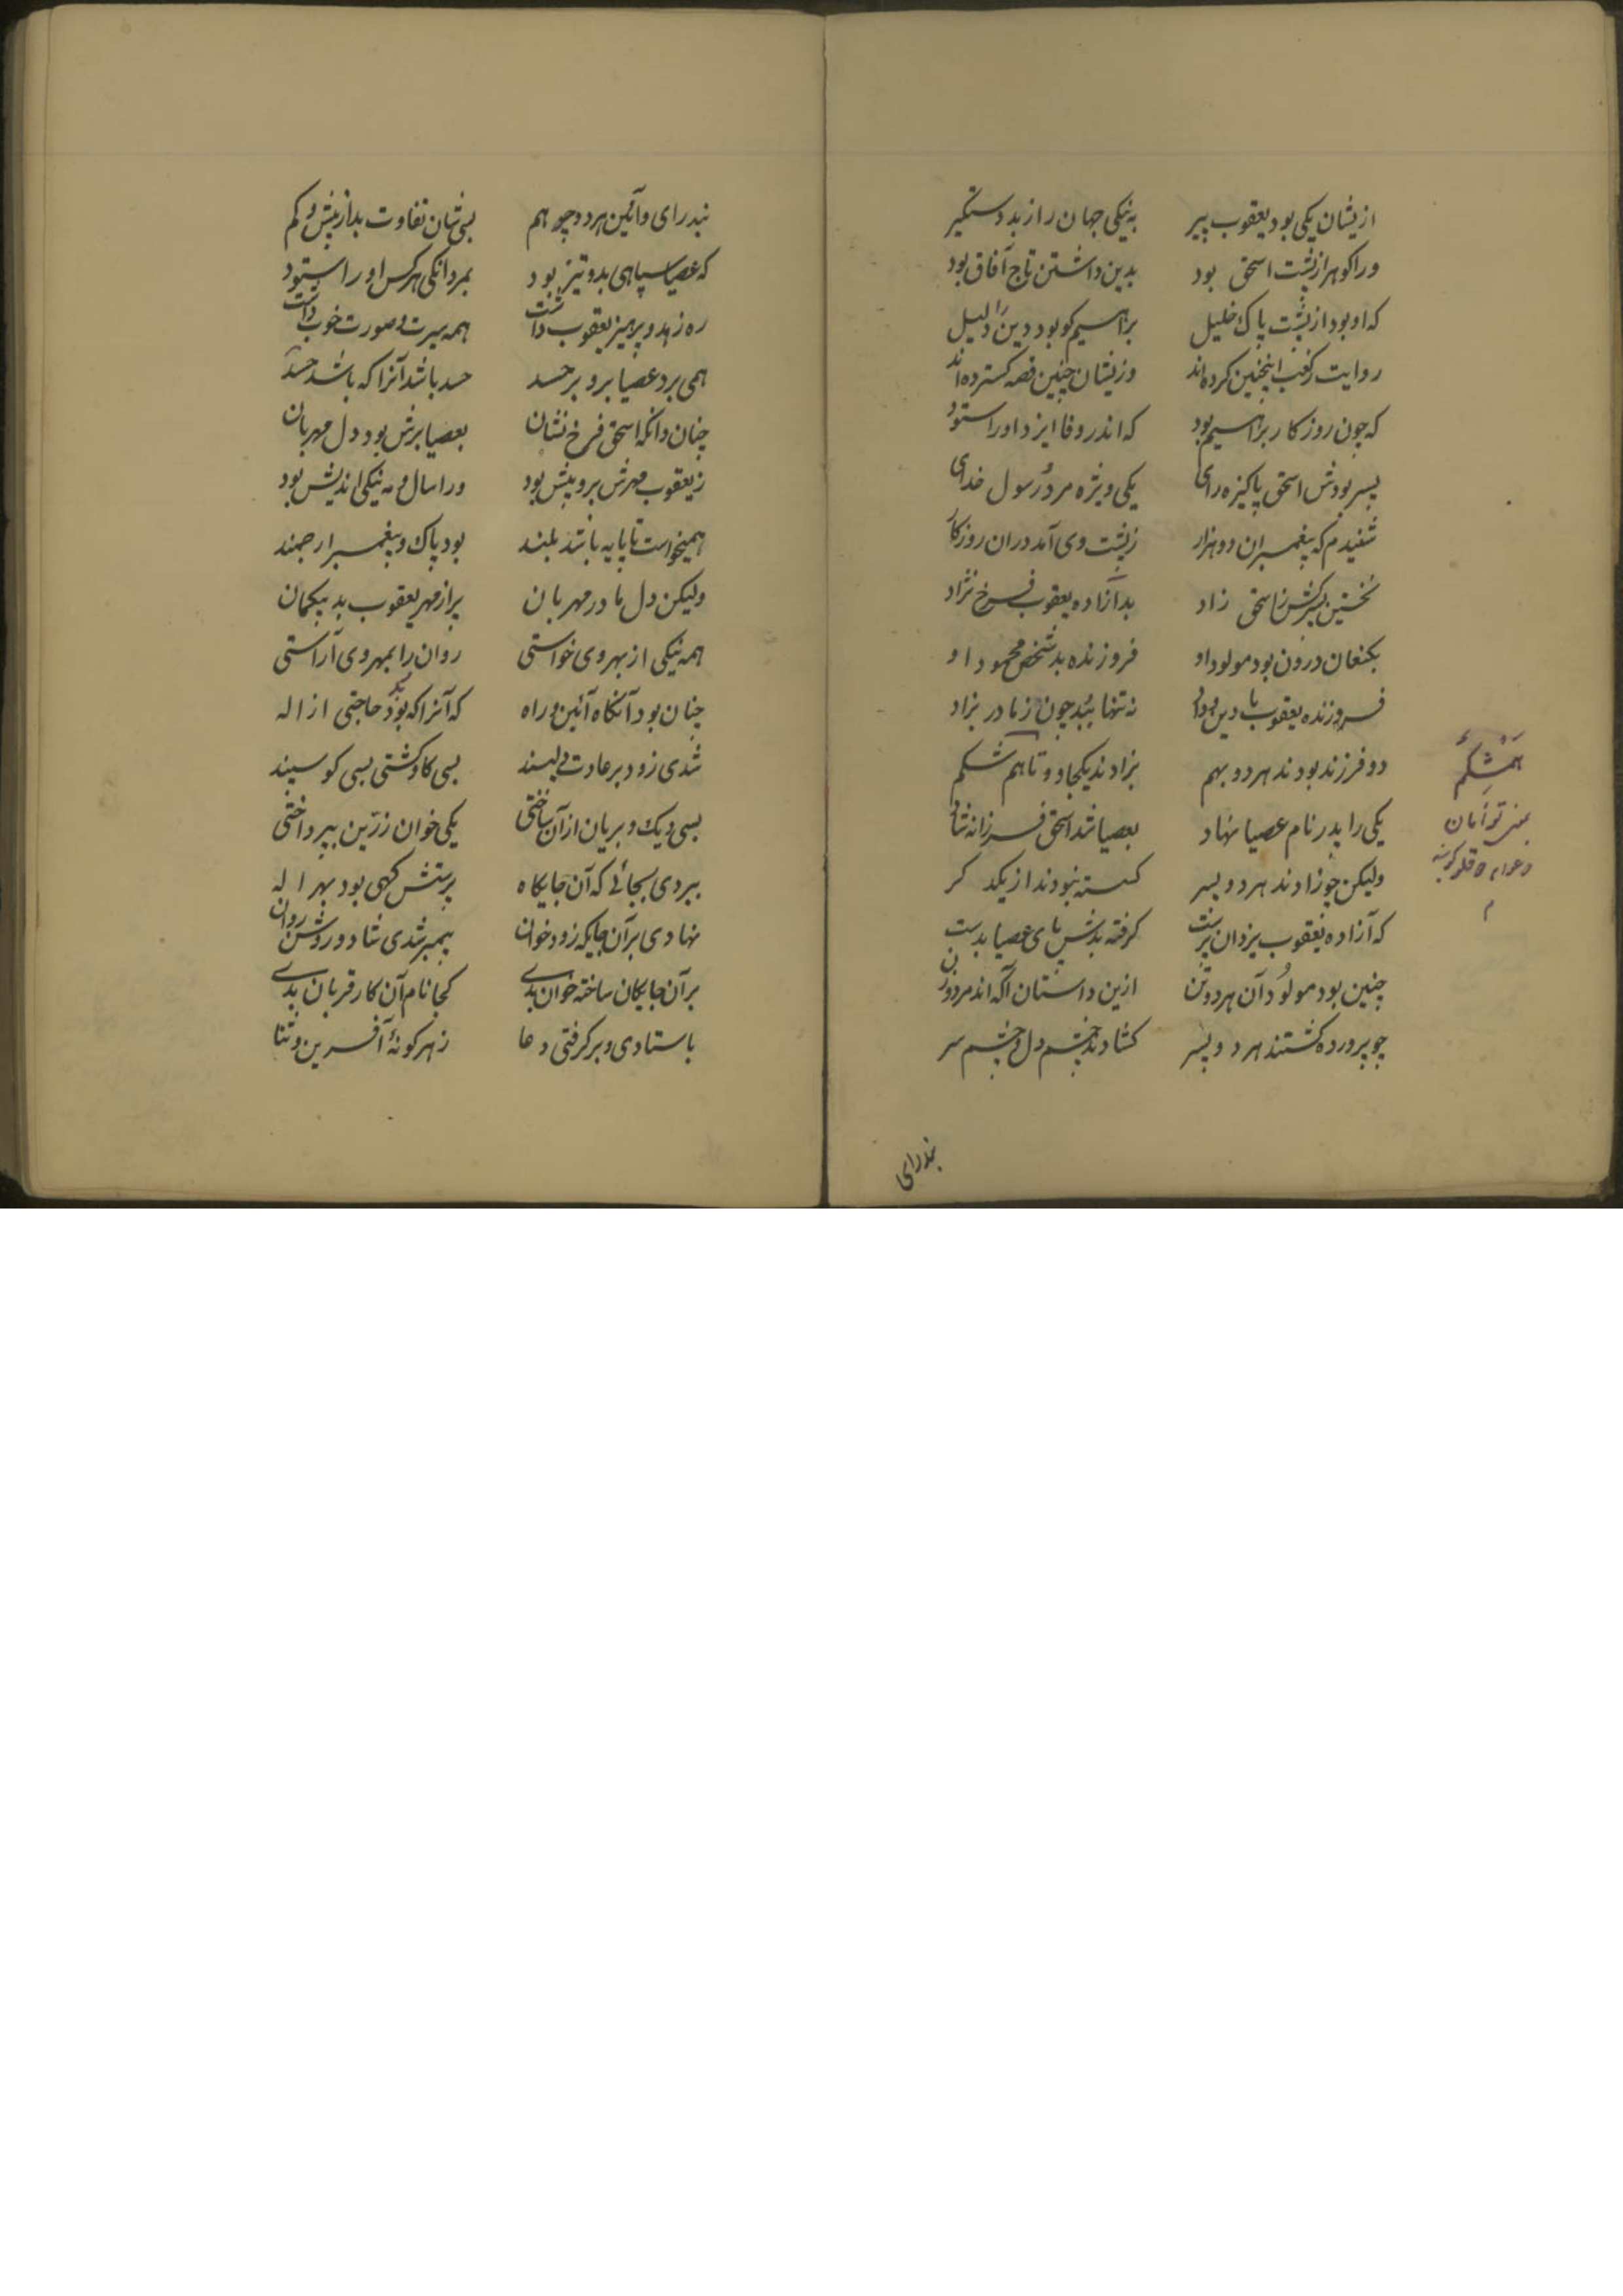 ازیشان یکی بود یعقوب پیر به نیکی جهان را ز بد دستگیر
ورا گوهر از پشت اسحق بود بدین داشتن تاج آفاق بود
که او بود از پشت پاک خلیل براهیم کو بود دین را دلیل
روایت ز کعب اینچنین کرده‌اند وزیشان چنین قصه گسترده‌اند
که چون روزکار براهیم بود که اندر وفا ایزد او را ستود
پسر بودش اسحق پاکیزه رای یکی ویژه مرد رسول خدای
شنیدم که پیغمبران دو هزار ز پشت وی آمد در آن روزکار
نخستین پسر کش ز اسحق زاد بد آزاده یعقوب فرخ نژاد
بکنعان درون بود مولود او فروزنده بد شخص محمود او
فروزنده یعقوب با دین و داد نه تنها بُد چون ز مادر بزاد
دو فرزند بودند هر دو بهم بزادند یکجا دو تا هم شکم
یکی را پدر نام عصیا نهاد بعصیا شد اسحق فرزانه شاد
ولیکن چو زادند هر دو پسر کسسته نبودند از یکدکر
که آزاده یعقوب یزدان پرست کرفته بدش پای عصیا بدست
چنین بود مولود آن هر دو تن ازین داستان آکه‌اند مرد و زن
چو پرورده کشتند هر دو پسر کشادند چشم دل و چشم سر
هم‌شکم
یعنی توأمان
م
بندرای
نبد رای و آئین هر دو چو هم بسی‌شان تفاوت بد از بیش و کم
که عصیا سپاهی بد و تیز بود بمردانکی هر کس او را ستود
ره زهد و پرهیز یعقوب داشت همه سیرت و صورت خوب داشت
همی برد عصیا برو بر حسد حسد باشد آنرا که باشد حسد
چنان دانکه اسحق فرخ نشان بعصیا برش بود دل مهربان
ز یعقوب مهرش برو بیش بود ورا سال و مه نیکی اندیش بود
همیخواست تا پایه باشد بلند بود پاک و پیغمبر ارجمند
ولیکن دل مادر مهربان پر از مهر یعقوب بد بیکمان
همه نیکی از بهر وی خواستی روان را بمهر وی آراستی
چنان بود آنکاه آئین و راه که آنرا که بود حاجتی از اله
شدی زود بر عادت دلپسند بسی کاو کشتی بسی کوسپند
بسی دیک و بریان از آن ساختی یکی خوان زرّین بپرداختی
ببردی بجائی که آن جایکاه پرستش کهی بود بهر اله
نهادی بر آن جایکه زود خوان پیمبر شدی شاد و روشن روان
بر آن جایکان ساخته خوان بدی کجا نام آن کار قربان بدی
باستادی و برکرفتی دعا ز هر کونهٔ آفرین و ثنا